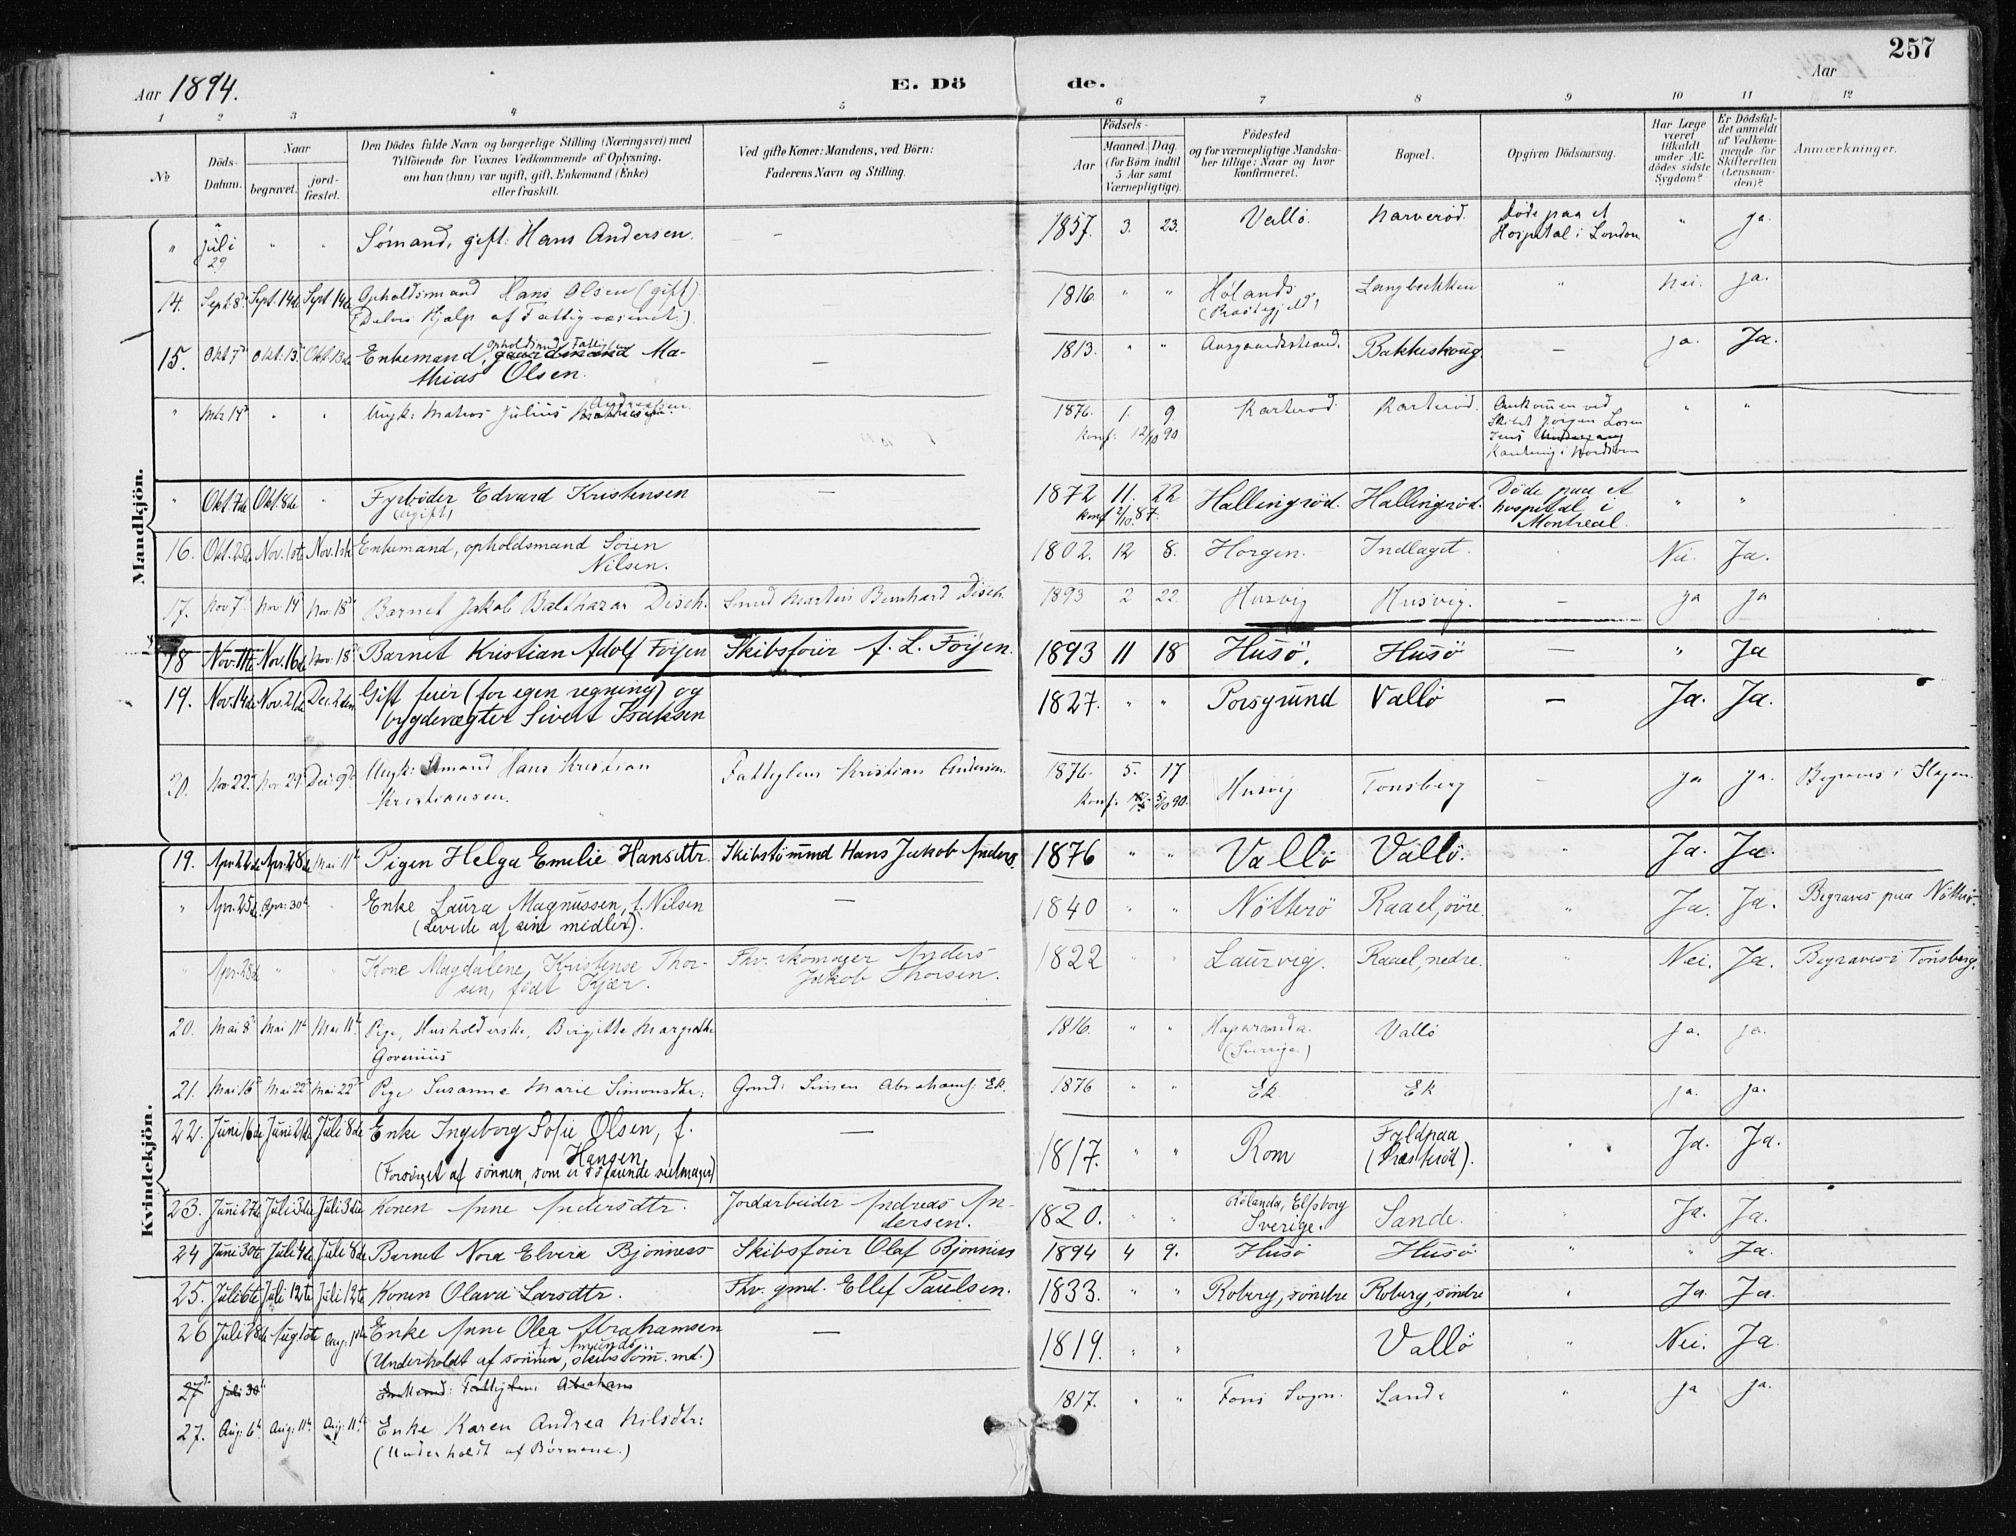 257
Aar 1894. E. Dö de. Aar
1 2 3 4 5 6 7 8 9 10 11 12
No Döds-Datum. Naar begravet. jord-fæstet. Den Dödes fulde Navn og borgerlige Stilling (Næringsvei) med Tilföiende for Voxnes Vedkommende af Oplysning, om han (hun) var ugift, gift, Enkemand (Enke) eller fraskilt. Ved gifte Koner: Mandens, ved Börn: Faderens Navn og Stilling. Födsels- Aar Maaned. Dag. (for Börn indtil 5 Aar samt Værnepligtige). Födested og for værnepligtige Mandska-ber tillige: Naar og hvor konfirmeret. Bopæl. Opgiven Dödsaarsag. Har Læge været tilkaldt under Af-dödes sidste Sygdom? Er Dödsfal-det anmeldt af Vedkom-mende for Skifteretten (Lensman-den)? Anmærkninger.
Mandkjön.
" Juli 29 " " Sømand, gift: Hans Andersen. — 1857. 3. 23. Vallö. Narveröd. Døde paa et Hospital i London " ja.
14. Sept. 8de Sept. 14de Sept 14de Opholdsmand Hans Olsen (gift) (Delvis Hjælp af Fattigvæsenet.) — 1816. " " Hölands (Præstegjeld) Langbækken " Nei. ja.
15. Okt 7de Okt. 13de Okt. 13de Enkemand, opholdsmand Fattiglem gaardmand Ma-thias Olsen. — 1813. " " Aasgaardstrand. Bakkeskoug — ja. Ja.
" Mts 14de " " Ungk: Matros Julius Andreassen. 1876. 1. 9 Konf: 12/10 90 Karteröd. Karteröd. Omkommen ved Skibet Jørgen Loren tzens Undergang Kantring i Nordsøen " "
" Okt. 7de Okt. 8de " Fyrböder Edvard Kristensen (ugift) — 1872 11. 22 Konf. 2/10. 87. Hallingröd. Hallingröd. Döde paa et hospital i Montreal. " "
16. Okt. 25de Nov. 1ste Nov. 1ste Enkemand, opholdsmand Sören Nilsen. 1802. 12 8. Horgen. Indlaget. Nei. Ja.
17. Nov 7de Nov. 14de Nov. 18de Barnet Jakob Balthazar Disch. Smed Martin Bernhard Disch. 1893 2 22 Husvig Husvig. — ja ja
18 Nov. 11te Nov. 16de Nov. 18de Barnet Kristian Adolf Föyen Skibsförer A. L. Föyen. 1893 11 18 Husö. Husö — " Ja
19. Nov. 14de Nov. 21de Dec. 2den Gift feier (for egen regning) og bygdevægter Sivert Isaksen 1827. " " Porsgrund Vallö — Ja. Ja.
20. Nov. 22de Nov 29de Dec. 9de Ungk: Sömand Hans Kristian Kristiansen. Fattiglem Kristian Andersen. 1876. 5. 17 Konf: 5/10 90. Husvig Tonsberg — ja ja. Begraves i Slagen.
Kvindekjön.
19. Apr. 22de Apr. 28de Mai 11te Pigen Helga Emilie Hansdtr. Skibstömmd Hans Jakob Anders. 1876 " " Vallö Vallö. Ja. Ja.
" Apr. 25de Apr. 30te " Enke Laura Magnussen, f. Nilsen (Levede af sine midler). — 1840 " " Nötterö Raael, övre. " Ja. Ja. Begraves paa Nötterö.
" Apr. 28de " " Kone Magdalene Kristense Thor-sen, födt Kjær. Fhv. skomager Anders Jakob Thorsen. 1822 Laurvig. Raael, nedre. Nei. Ja. Begraves i Tönsberg.
20. Mai 8de Mai 11te Mai 11te Pige, Husholderske, Birgitte Margrethe Govenius 1816. " " Haparanda. (Sverige) Vallö ja. ja.
21. Mai 16de Mai 22de Mai 22de Pige Susanne Marie Simonsdtr: Gmd: Simen Abrahams. Ek. 1876 " " Ek Ek ja. ja.
22. Juni 16de Juni 21de Juli 8de Enke Ingeborg Sofie Olsen, f. Hansen (Forsörget af sönnen, som er söfarende seilmager) — 1817. " " Rom Faldpaa (Præsteröd). " Ja. Ja.
23. Juni 27de Juli 3die Juli 3die Konen Anne Andersdtr. Jordarbeider Andreas An-dersen. 1820. " " Rölanda, Elfsborg Sverige. Sande. Ja. Ja.
24 Juni 30te Juli 4de Juli 8de Barnet Nora Elvira Bjönness Skibsförer Olaf Bjönness 1894 4 9. Husö Husö " " Ja.
25. Juli 6te Juli 12te Juli 12te Konen Olava Larsdtr. Fhv. gmd. Ellef Paulsen. 1833. " " Roberg, söndre Roberg, söndre " Ja. Ja.
26 Juli 28de Aug 1ste Aug. 1ste Enke Anne Olea Abrahamsen f. Amunds.. (Underholdt af sönnen, skibstöm.md.) — 1819. " " Vallö " Nei. Ja
27de Juli 30te Enkemand: Fattiglem: Abraham
27. Aug. 6te Aug. 11te Aug. 11te Enke Karen Andrea Nilsdtr: (Underholdt af Børnene.) 1817. " " Fons Sogn. Sande " ja ja.